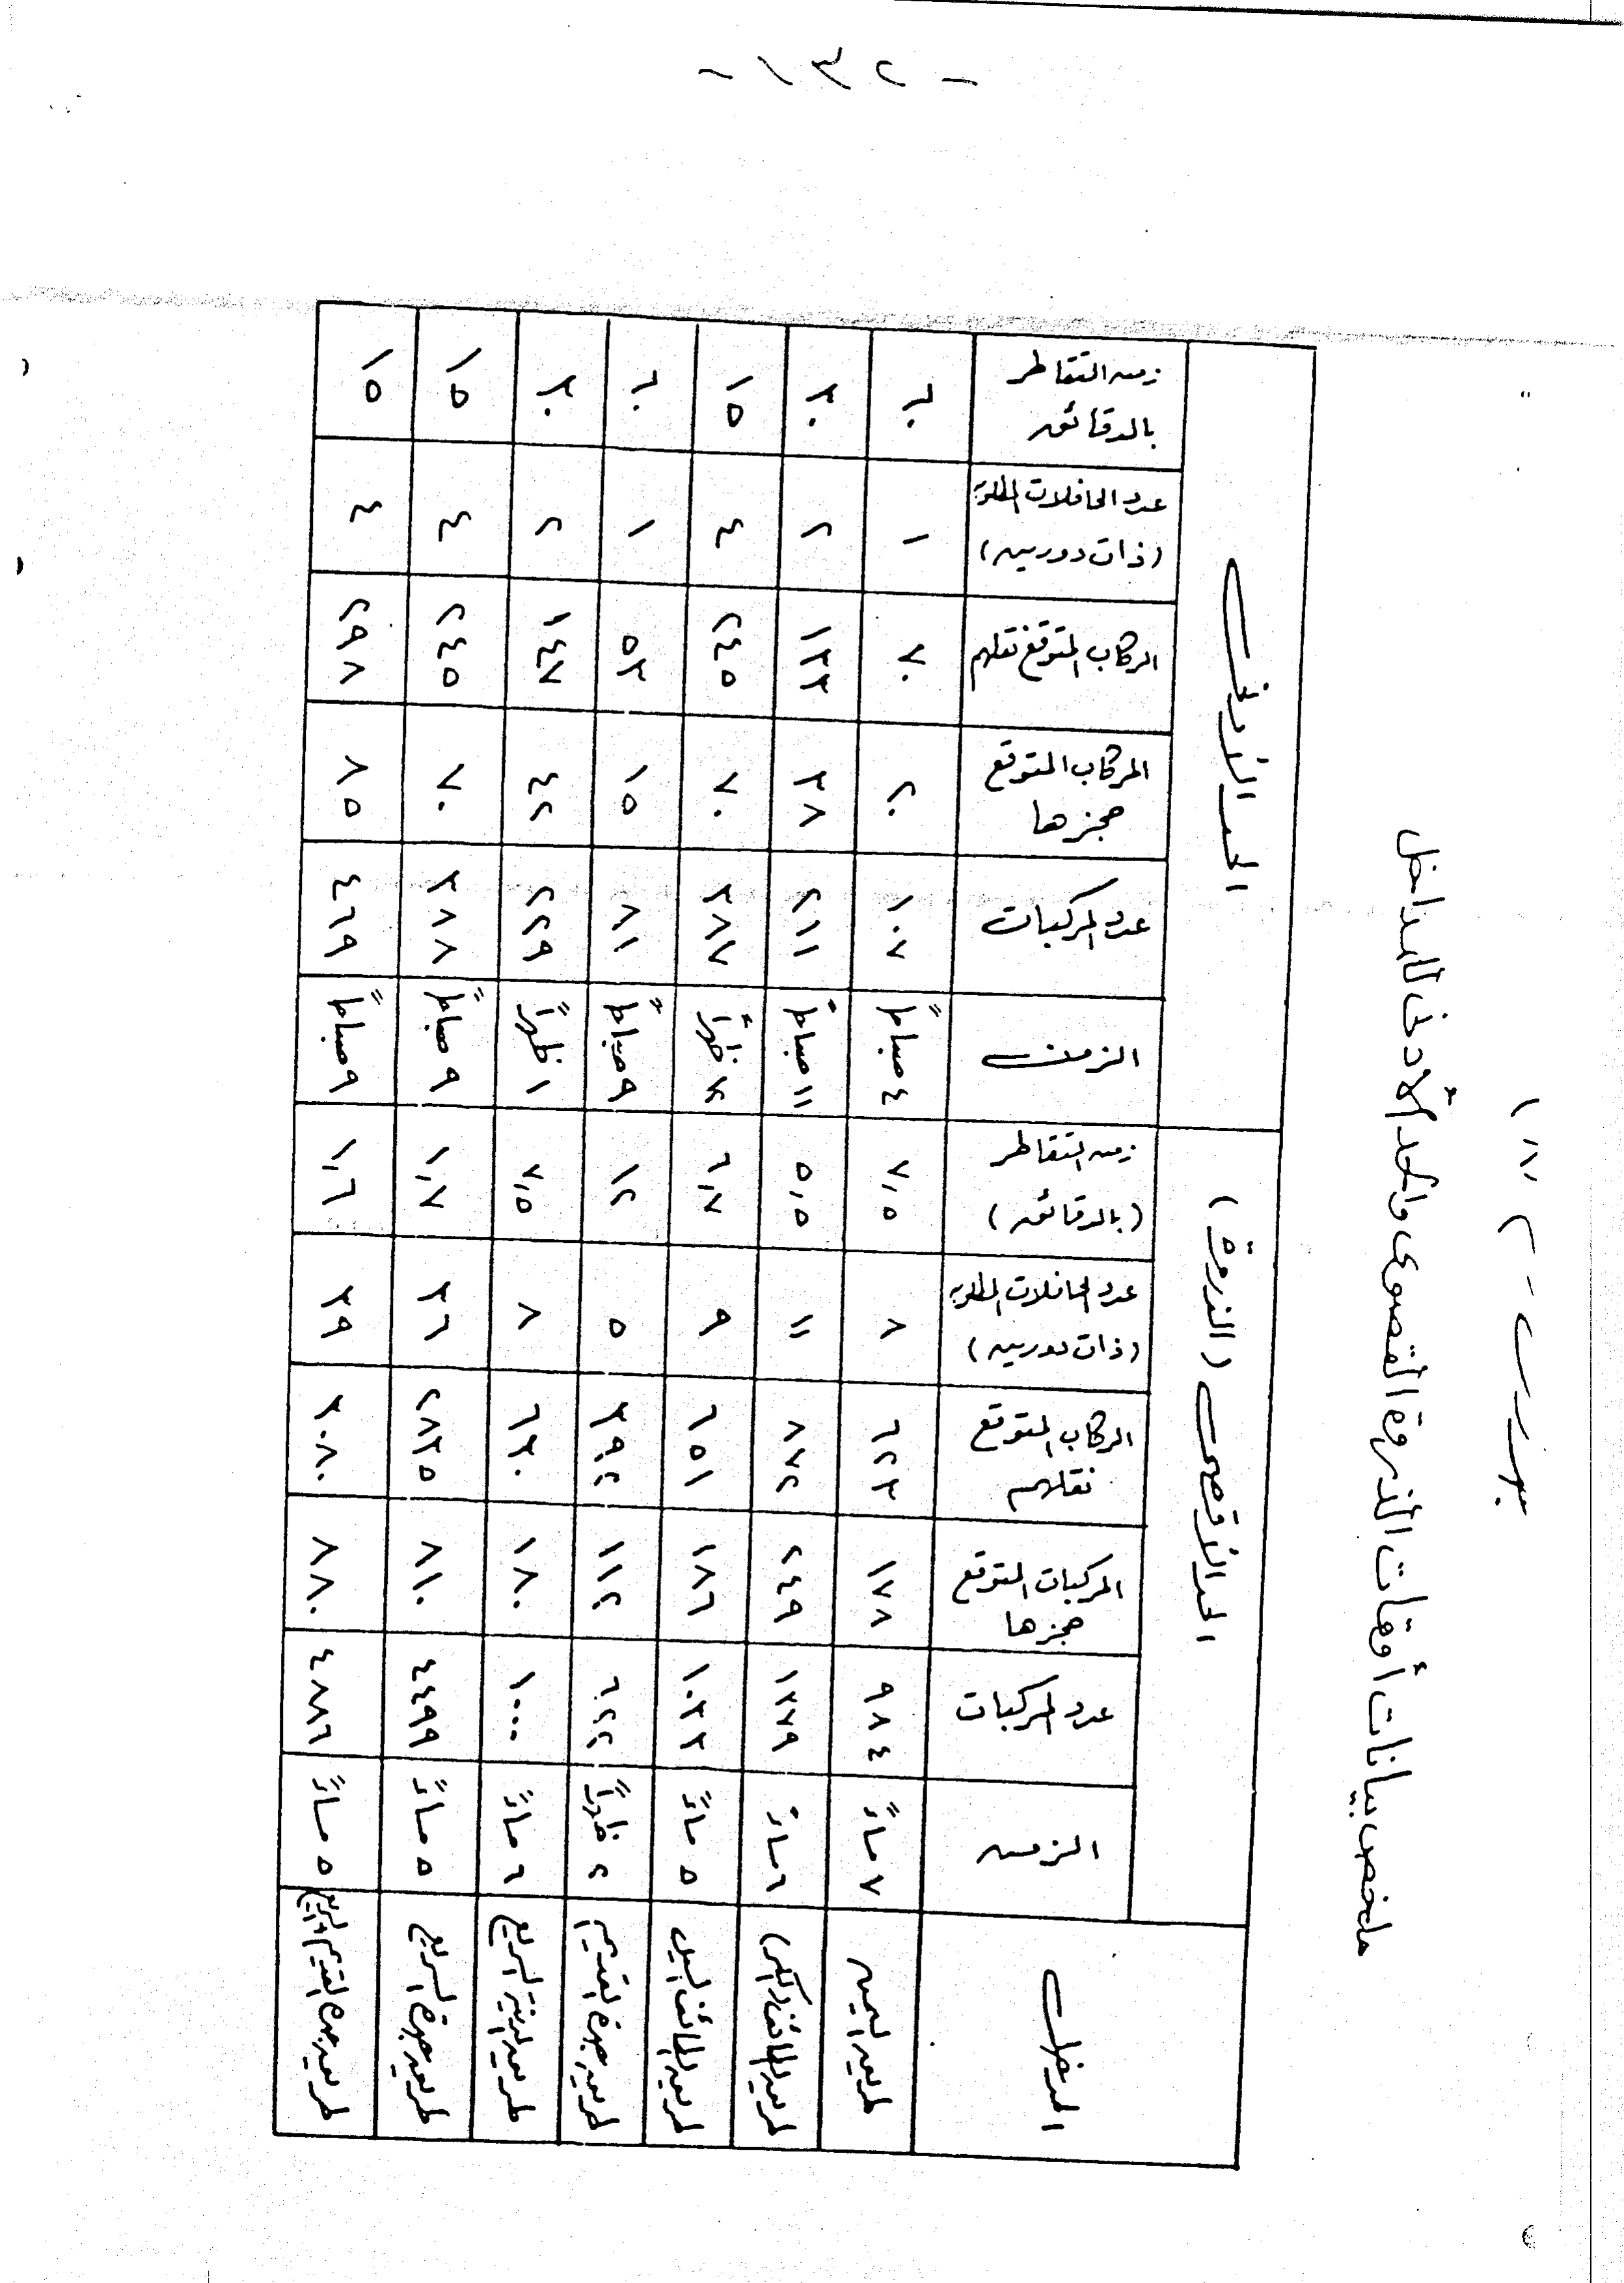 - ٢٣١ -
جدول
ملخص بيانات أوقات الذروة القصوى والحد الأدنى للمداخل
المدخل
الحد الأقصى (الذروة)
الحد الأدنى
الزمن
عدد المركبات
المركبات المتوقع
حجزها
الركاب المتوقع
نقلهم
عدد الحافلات المطلوبة
(ذات دورين)
زمن التقاطر
(بالدقائق)
الزمن
عدد المركبات
المركاب المتوقع
حجزها
الركاب المتوقع نقلهم
عدد الحافلات المطلوبة
(ذات دورين)
زمن التقاطر
بالدقائق
طريق اليمن ٧ مساءً ٩٨٤ ١٧٨ ٦٢٣ ٨ ٧,٥ ٤ صباحاً ١٠٧ ٢٠ ٧٠ ١ ٦٠
طريق الطائف (الكر) ٦ مساءً ١٣٧٩ ٢٤٩ ٨٧٢ ١١ ٥,٥ ١١ صباحاً ٢١١ ٣٨ ١٣٣ ٢ ٣٠
طريق الطائف السيل ٥ مساءً ١٠٣٣ ١٨٦ ٦٥١ ٩ ٦,٧ ١٢ ظهراً ٣٨٧ ٧٠ ٢٤٥ ٤ ١٥
طريق جدة القديم ٢ ظهراً ٦٢٢ ١١٢ ٣٩٢ ٥ ١٢ ٩ صباحاً ٨١ ١٥ ٥٣ ١ ٦٠
طريق المدينة السريع ٦ مساءً ١٠٠٠ ١٨٠ ٦٣٠ ٨ ٧,٥ ١ ظهراً ٢٢٩ ٤٢ ١٤٧ ٢ ٣٠
طريق جدة السريع ٥ مساءً ٤٤٩٩ ٨١٠ ٢٨٣٥ ٣٦ ١,٧ ٩ صباحاً ٣٨٨ ٧٠ ٢٤٥ ٤ ١٥
طريق جدة القديم والسريع ٥ مساءً ٤٨٨٦ ٨٨٠ ٣٠٨٠ ٣٩ ١,٦ ٩ صباحاً ٤٦٩ ٨٥ ٢٩٨ ٤ ١٥